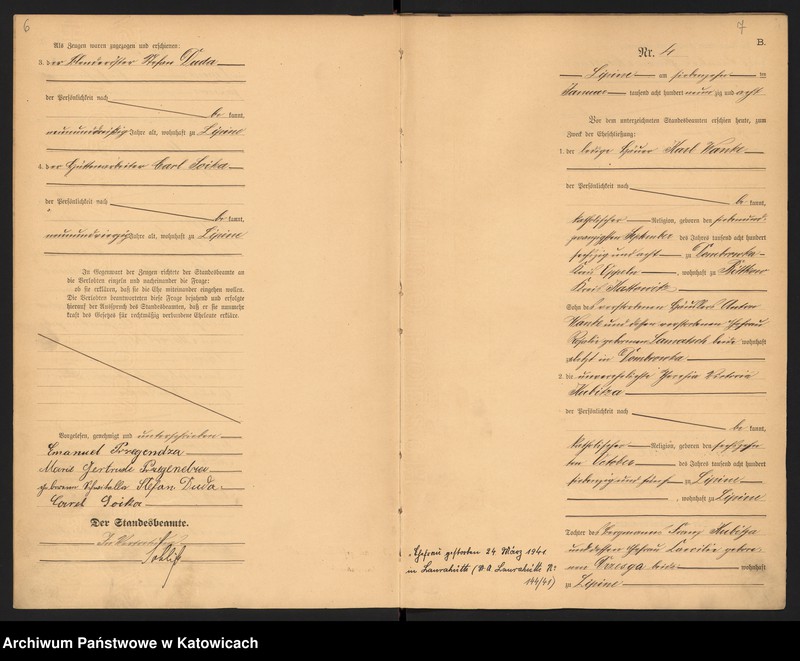 6
Als Zeugen waren zugezogen und erschienen:
3. der Stefan Duda
der Persönlichkeit nach
be kannt,
neununddreißig Jahre alt, wohnhaft zu Lipine
4. der Hüttenarbeiter Carl Soika
der Persönlichkeit nach
be kannt,
neunundvierzig Jahre alt, wohnhaft zu Lipine
In Gegenwart der Zeugen richtete der Standesbeamte an
die Verlobten einzeln und nacheinander die Frage:
ob sie erklären, daß sie die Ehe miteinander eingehen wollen.
Die Verlobten beantworteten diese Frage bejahend und erfolgte
hierauf der Ausspruch des Standesbeamten, daß er sie nunmehr
kraft des Gesetzes für rechtmäßig verbundene Eheleute erkläre.
Vorgelesen, genehmigt und unterschrieben
Emanuel Pregendza
Marie Gertrude Pregendza
geborene Stefan Duda
Carl Soika
Der Standesbeamte.
In Vertretung
7
B.
Nr. 4
Lipine am siebenzehn ten
Januar tausend acht hundert neunzig und acht
Vor dem unterzeichneten Standesbeamten erschien heute, zum
Zweck der Eheschließung:
1. der ledige Häuer Karl Wanke
der Persönlichkeit nach
be kannt,
katholischer Religion, geboren den siebenund-
zwanzigsten September des Jahres tausend acht hundert
sechszig und acht zu Dombrowka
Kreis Oppeln, wohnhaft zu Bittkow
Kreis Kattowitz
Sohn des verstorbenen Häuslers Anton
Wanke und dessen verstorbenen Ehefrau
Rosalie geborenen beide wohnhaft
zuletzt in Dombrowka
2. die unverehelichte Theresia Victoria
Kubitza
der Persönlichkeit nach
be kannt,
katholischer Religion, geboren den sechszehn
ten October des Jahres tausend acht hundert
siebenzig und fünf zu Lipine
, wohnhaft zu Lipine
Tochter des Bergmanns Franz Kubitza
und dessen Ehefrau Caecilie gebore-
nen beide wohnhaft
zu Lipine
Ehefrau gestorben 24 März 1941
in Laurahütte (St. A. Laurahütte Nr.
144/41)
Archiwum Państwowe w Katowicach